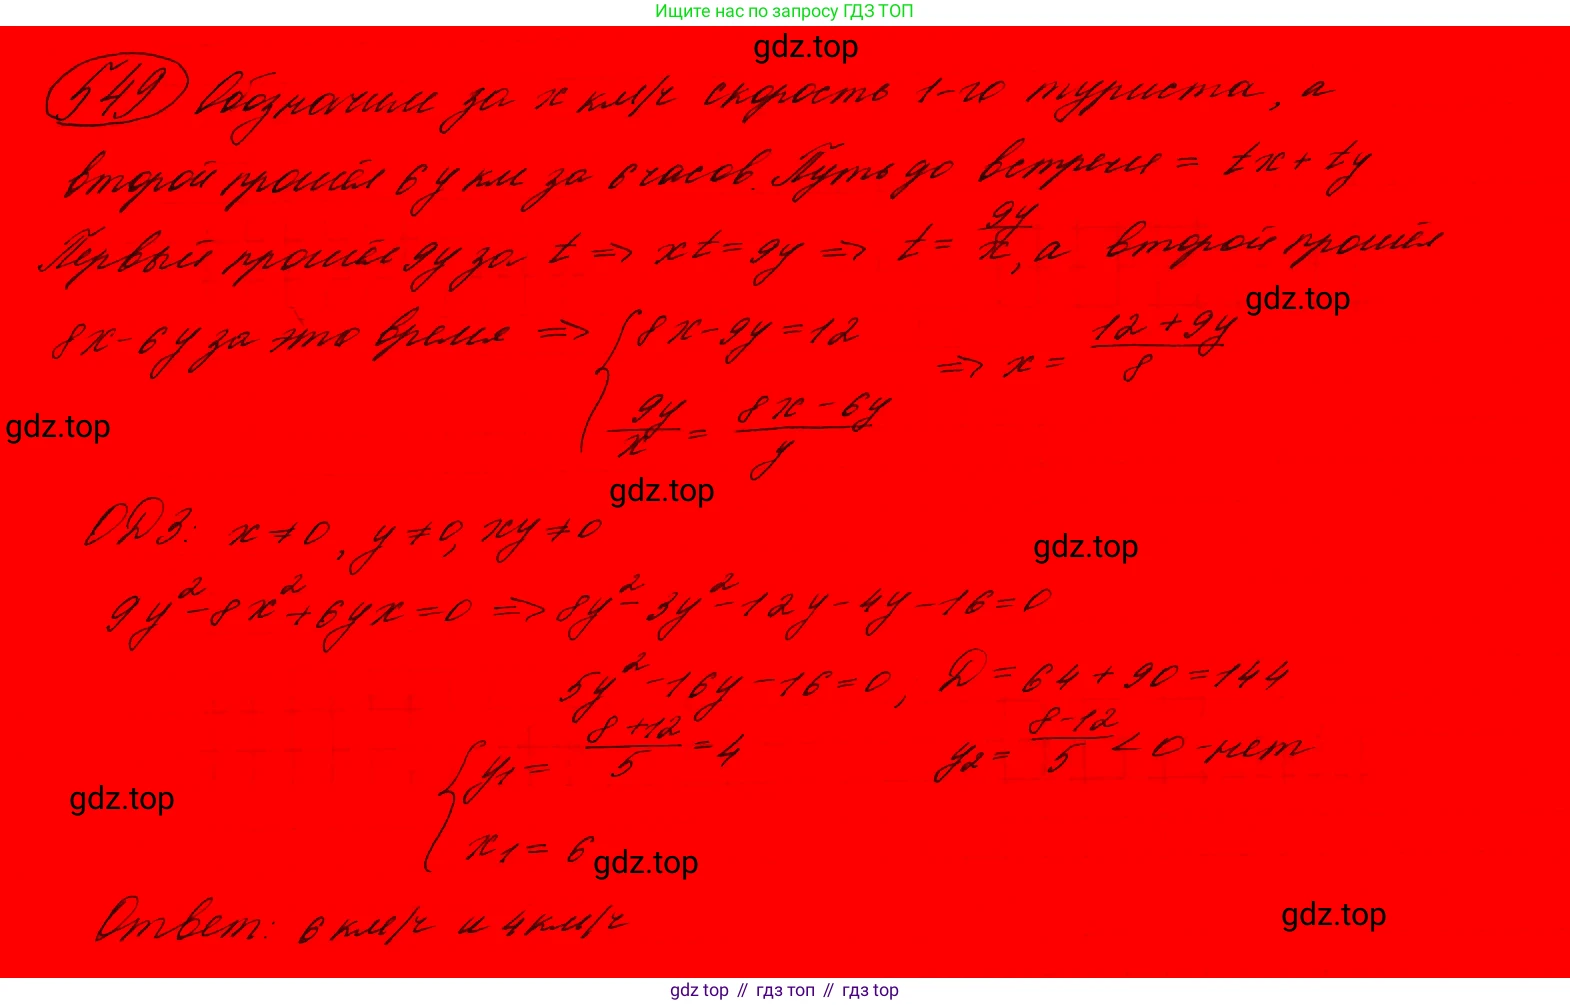 Ищите нас по запросу ГДЗ ТОП
gdz.top
549 Обозначим за x км/ч скорость 1-го туриста, а
второй прошёл 6y км за 6 часов. Путь до встречи = tx + ty
Первый прошёл 9y за t => xt = 9y => t = 9y/x, а второй прошёл
gdz.top
8x - 6y за это время => { 8x - 9y = 12 => x = (12 + 9y)/8
9y/x = (8x - 6y)/y
gdz.top
gdz.top
ОДЗ: x ≠ 0, y ≠ 0, xy ≠ 0
gdz.top
9y² - 8x² + 6yx = 0 => 8y² - 3y² - 12y - 4y - 16 = 0
5y² - 16y - 16 = 0, D = 64 + 90 = 144
{ y₁ = (8 + 12)/5 = 4 y₂ = (8 - 12)/5 < 0 - нет
gdz.top
x₁ = 6
gdz.top
Ответ: 6 км/ч и 4 км/ч
gdz.top
gdz top // гдз топ // гдз top